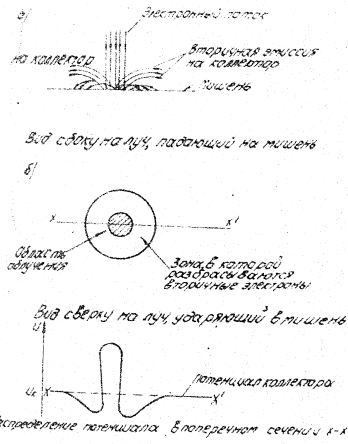 а)
Электронный поток
на коллектор
Вторичная эмиссия
на коллектор
Мишень
Вид сбоку на луч, падающий на мишень
б)
х
х'
Область
облучения
Зона, в которой
разбрасываются
вторичные электроны
Вид сверху на луч, ударяющий в мишень
U
Uк
х
Потенциал коллектора
х'
Распределение потенциала в поперечном сечении х-х